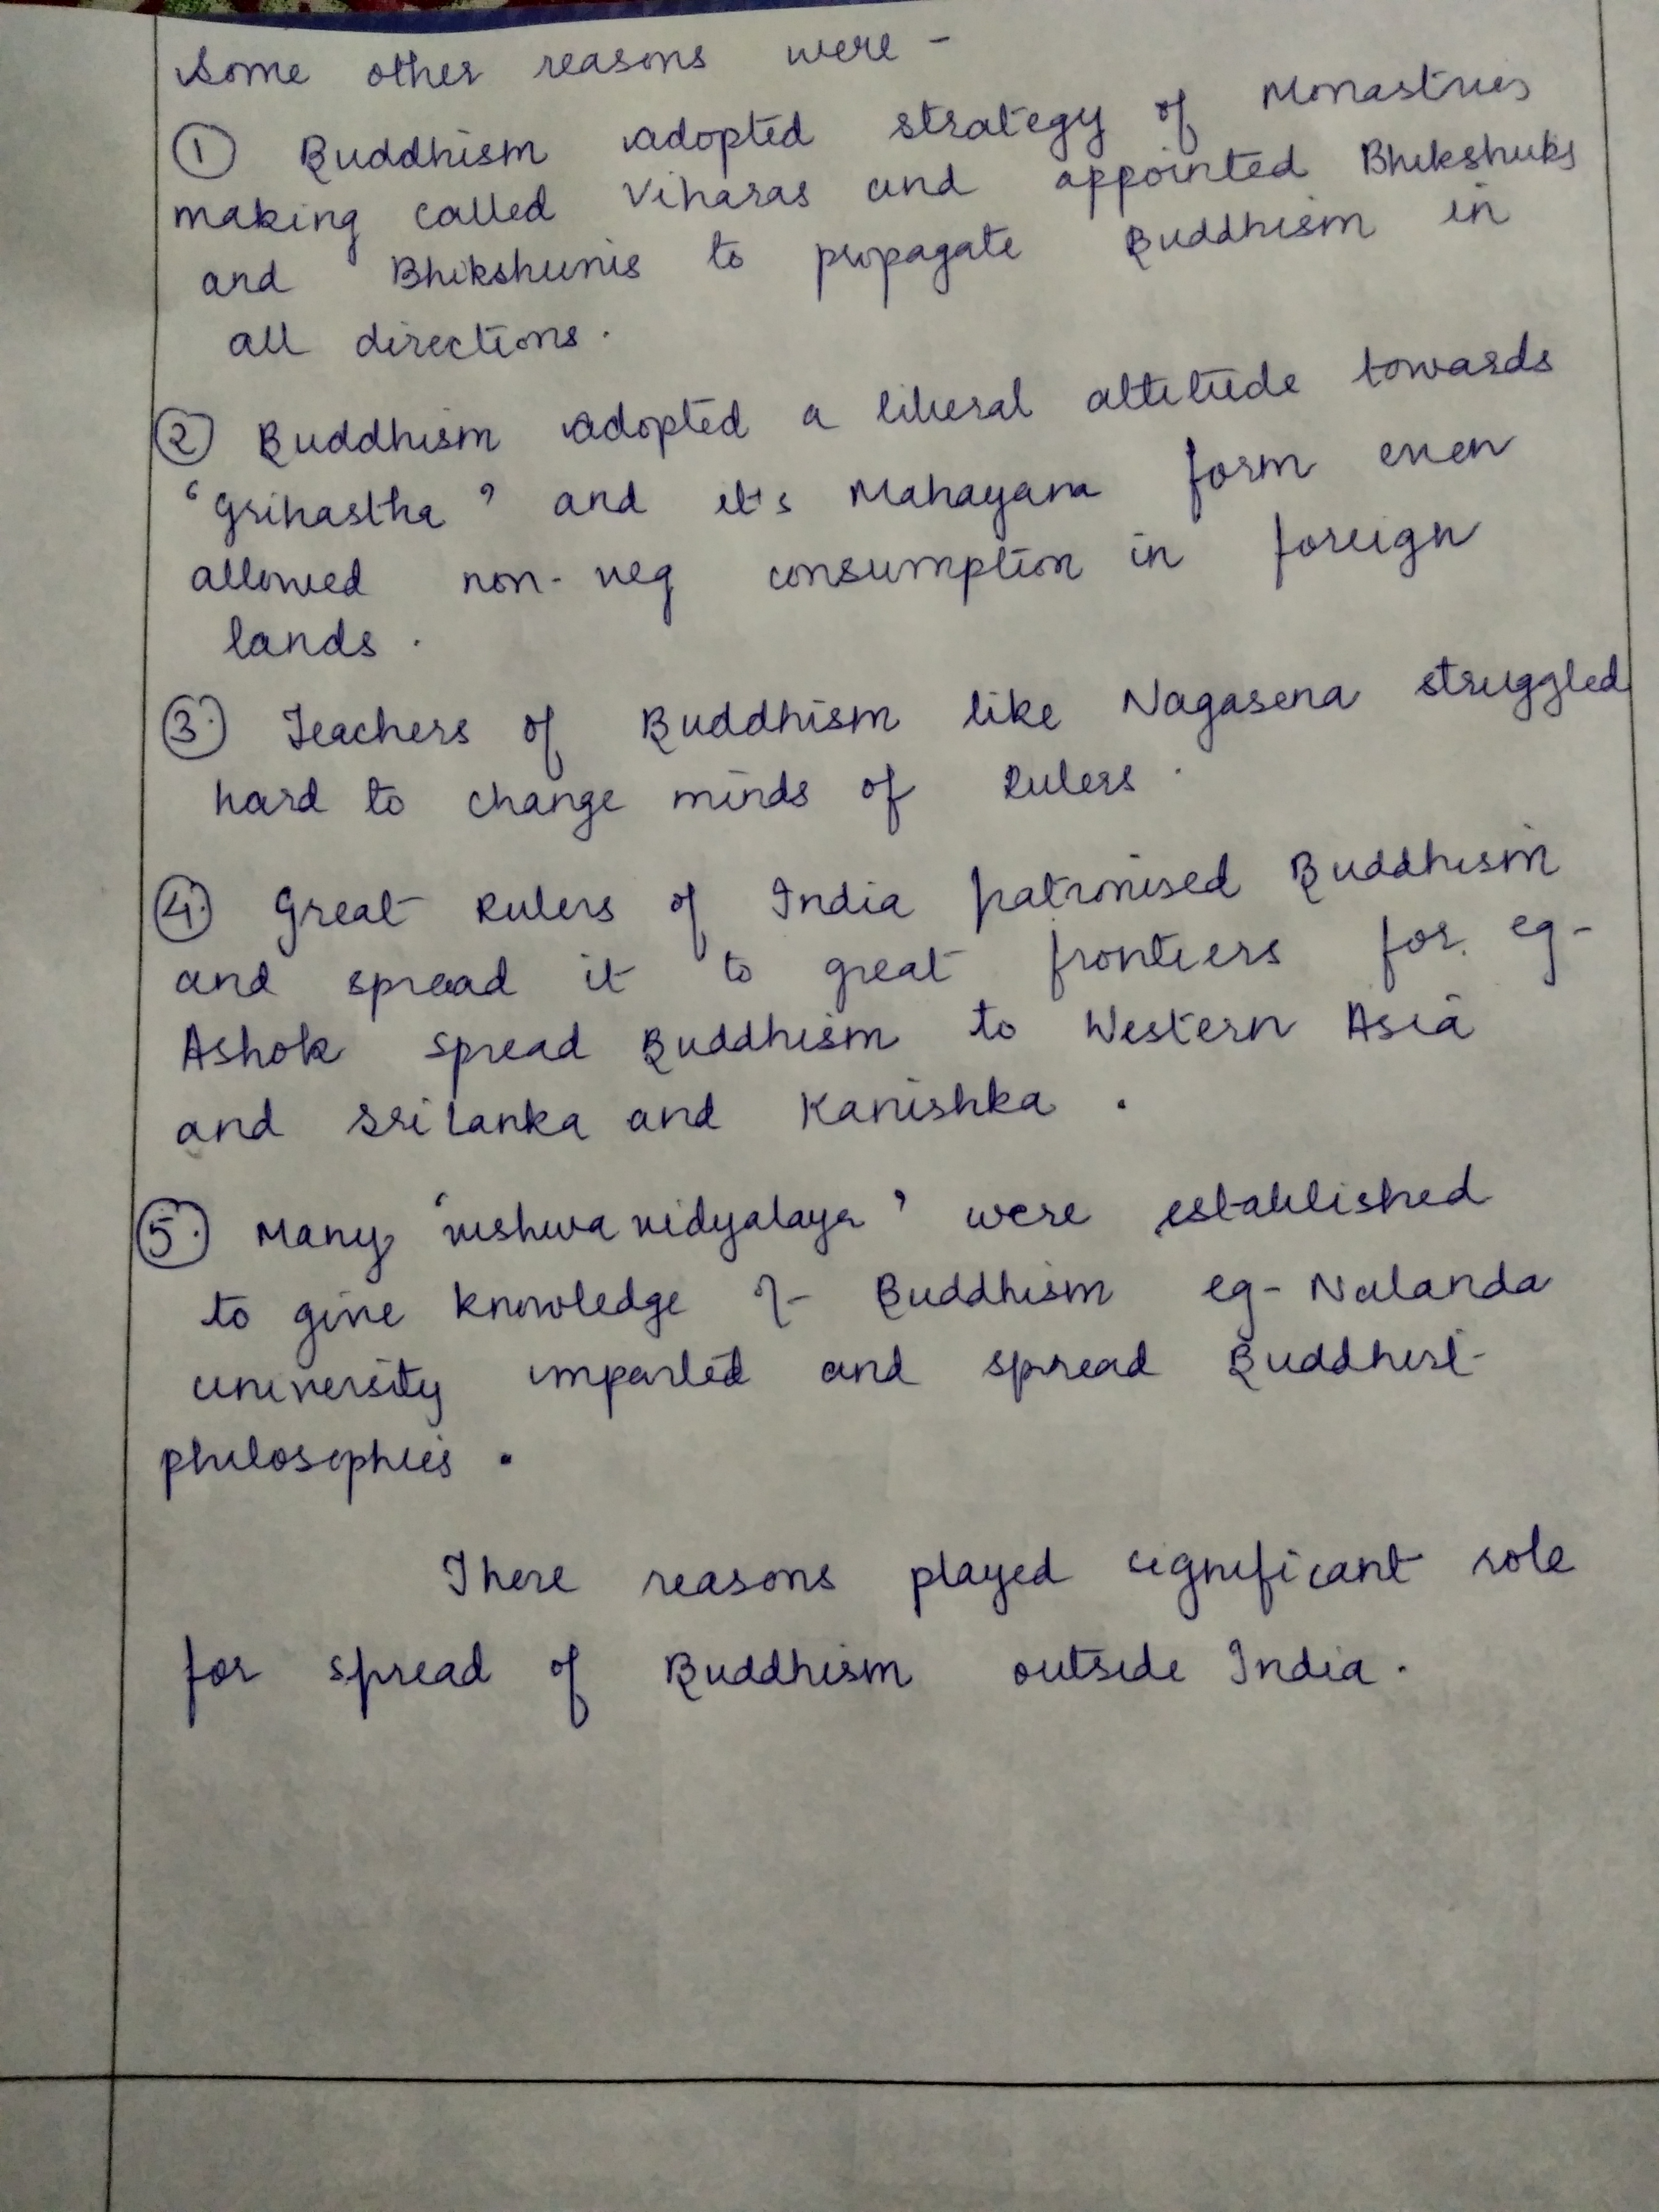 Some other reasons were -
① Buddhism adopted strategy of Monastries
making called Viharas and appointed Bhikshuks
and Bhikshunis to propagate Buddhism in
all directions.
② Buddhism adopted a liberal attitude towards
'Grihastha' and it's Mahayana form even
allowed non-veg consumption in foreign
lands.
③. Teachers of Buddhism like Nagasena struggled
hard to change minds of Rulers.
④. Great Rulers of India patronised Buddhism
and spread it to great frontiers for eg-
Ashok spread Buddhism to Western Asia
and Sri Lanka and Kanishka.
⑤. Many 'vishwavidyalaya' were established
to give knowledge of Buddhism eg- Nalanda
university imparted and spread Buddhist
philosophies.
There reasons played significant role
for spread of Buddhism outside India.